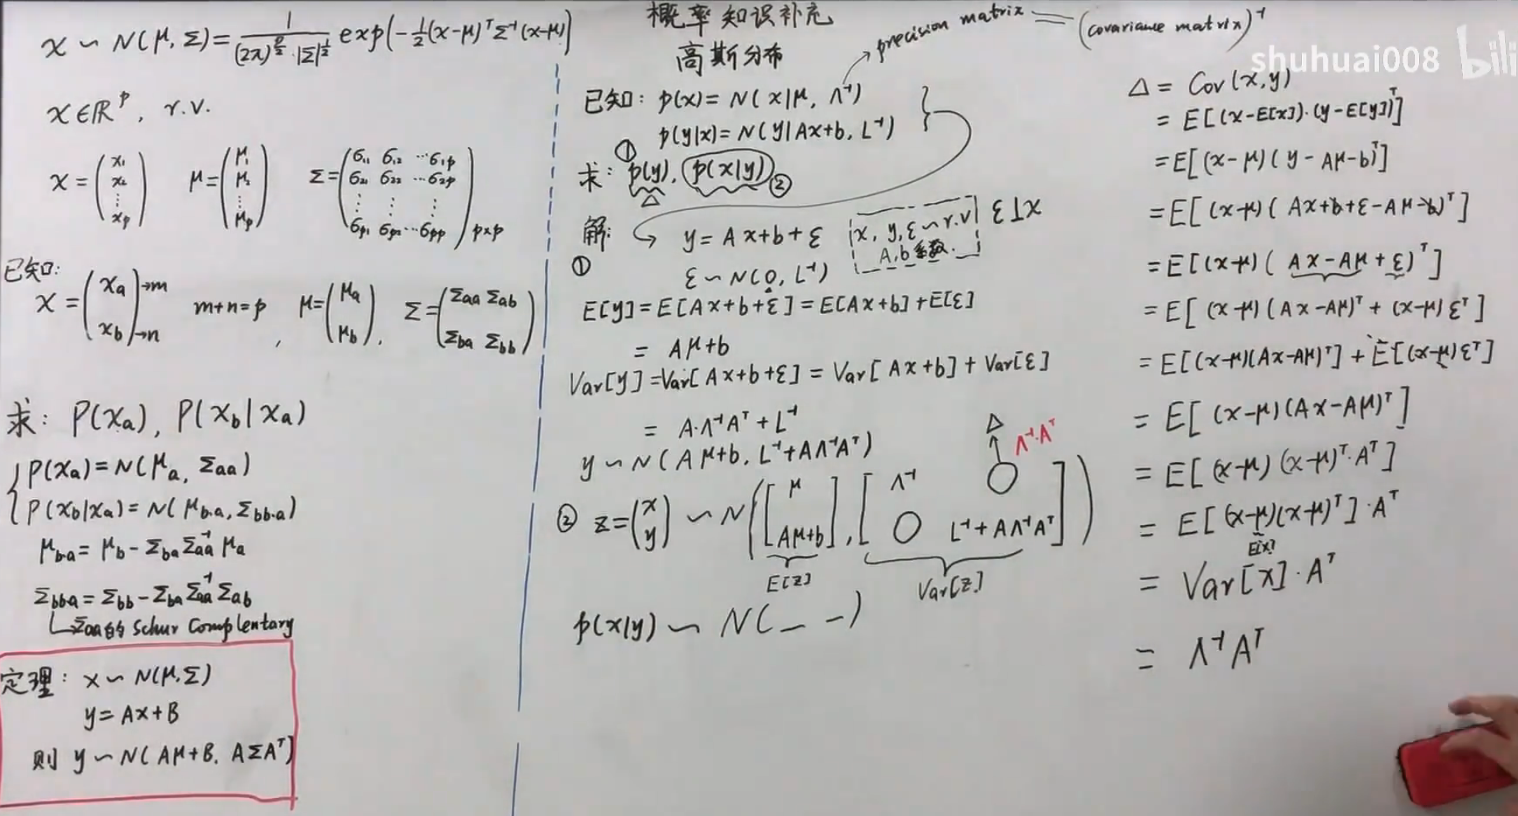 概率知识补充
高斯分布
shuhuai008 bili
x ∽ N(μ, Σ) = 1/((2π)^{p/2}·|Σ|^{1/2}) exp(-1/2(x-μ)ᵀΣ⁻¹(x-μ))
x∈ℝᵖ, r.v.
x = (x₁ x₂ ⋮ xₚ) μ = (μ₁ μ₂ ⋮ μₚ) Σ = (σ₁₁ σ₁₂ ⋯ σ₁ₚ σ₂₁ σ₂₂ ⋯ σ₂ₚ ⋮ ⋮ ⋮ σₚ₁ σₚ₂ ⋯ σₚₚ)p×p
已知:
x = (x_a →m x_b →n) m+n=p, μ = (μ_a μ_b), Σ = (Σ_aa Σ_ab Σ_ba Σ_bb)
求: P(x_a), P(x_b|x_a)
P(x_a) = N(μ_a, Σ_aa)
P(x_b|x_a) = N(μ_b·a, Σ_bb·a)
μ_b·a = μ_b - Σ_ba Σ_aa⁻¹ μ_a
Σ_bb·a = Σ_bb - Σ_ba Σ_aa⁻¹ Σ_ab
Σ_aa的 Schur Complentary
定理: x ∽ N(μ, Σ)
y = Ax+B
则 y ∽ N(Aμ+B, AΣAᵀ)
precision matrix = (covariance matrix)⁻¹
已知: p(x) = N(x|μ, Λ⁻¹)
p(y|x) = N(y|Ax+b, L⁻¹)
①
求: p(y), p(x|y) ②
△
解: y = Ax+b+ε
x, y, ε ∽ r.v
A, b 系数.
ε⊥x
①
ε ∽ N(0, L⁻¹)
E[y] = E[Ax+b+ε] = E[Ax+b] + E[ε]
= Aμ+b
Var[y] = Var[Ax+b+ε] = Var[Ax+b] + Var[ε]
= A·Λ⁻¹Aᵀ + L⁻¹
y ∽ N(Aμ+b, L⁻¹+AΛ⁻¹Aᵀ)
△ Λ⁻¹·Aᵀ
② z = (x y) ∽ N([μ Aμ+b], [Λ⁻¹ ○ ○ L⁻¹+AΛ⁻¹Aᵀ])
E[z] Var[z]
p(x|y) ∽ N(— —)
△ = Cov(x,y)
= E[(x-E[x])·(y-E[y])ᵀ]
= E[(x-μ)(y-Aμ-b)ᵀ]
= E[(x-μ)(Ax+b+ε-Aμ-b)ᵀ]
= E[(x-μ)(Ax-Aμ+ε)ᵀ]
= E[(x-μ)(Ax-Aμ)ᵀ + (x-μ)εᵀ]
= E[(x-μ)(Ax-Aμ)ᵀ] + E[(x-μ)εᵀ]
= E[(x-μ)(Ax-Aμ)ᵀ]
= E[(x-μ)(x-μ)ᵀ·Aᵀ]
= E[(x-μ)(x-μ)ᵀ]·Aᵀ
E[x]
= Var[x]·Aᵀ
= Λ⁻¹Aᵀ